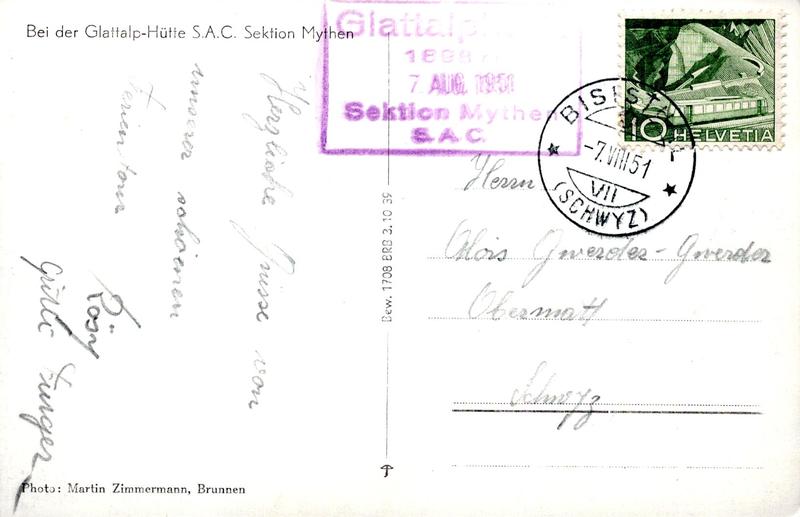 Bei der Glattalp-Hütte S.A.C. Sektion Mythen
Herzliche Grüsse von
unserer schönen
Ferientour
Rösy
Furger
Photo: Martin Zimmermann, Brunnen
Bew. 1708 BRB 3.10 39
Glattalp
7. AUG. 1951
Sektion Mythen
S.A.C.
10 HELVETIA
BISISTAL
-7.VIII51
VII
(SCHWYZ)
Herrn
Alois Gwerder-Gwerder
Obermatt
Schwyz